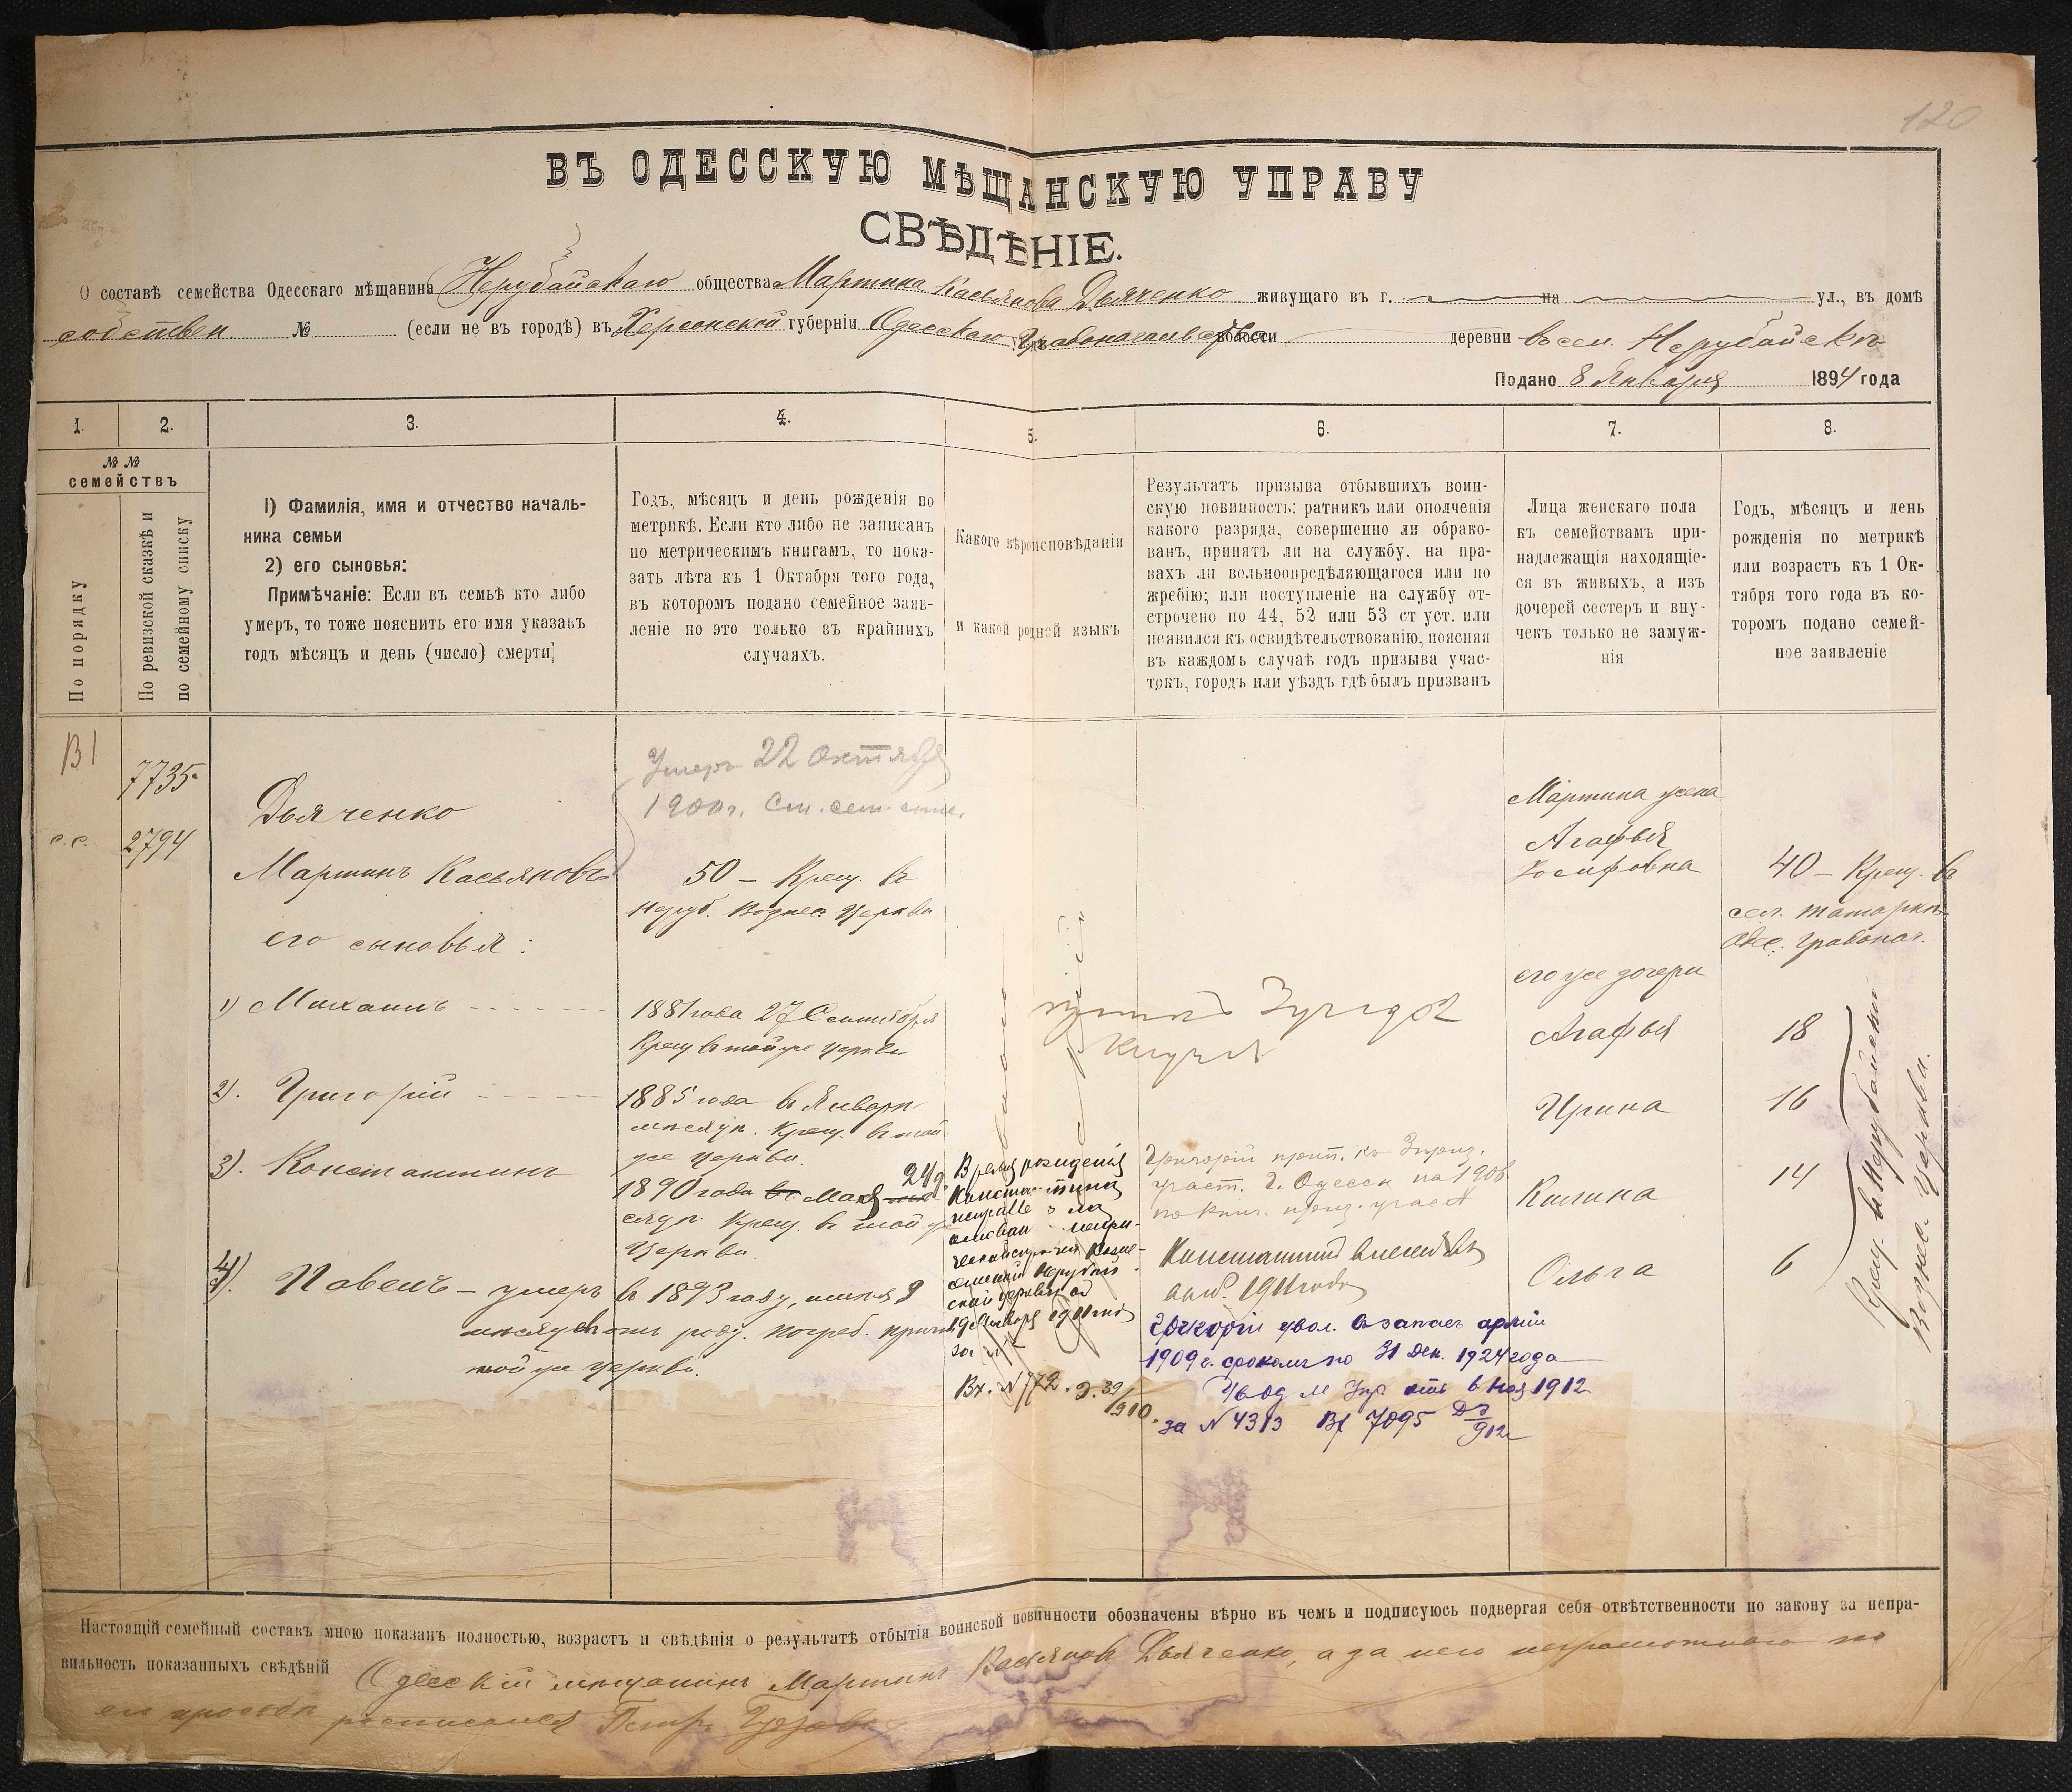 120
ВЪ ОДЕССКУЮ МѢЩАНСКУЮ УПРАВУ
СВѢДѢНІЕ.
О составѣ семейства Одесскаго мѣщанина Нерубайскаго общества Мартина Касьянова Дьяченко живущаго въ г. на ул., въ домѣ
собствен. № (если не въ городѣ) въ Херсонской губерніи Одесскаго уѣзд. волости деревни въ сел. Нерубайскѣ
Подано 8 Января 1894 года
1. 2. 3. 4. 5. 6. 7. 8.
№ №
семействъ
По порядку
По ревизской сказкѣ и
по семейному списку
1) Фамилія, имя и отчество началь-
ника семьи
2) его сыновья:
Примѣчаніе: Если въ семьѣ кто либо
умеръ, то тоже пояснить его имя указавъ
годъ мѣсяцъ и день (число) смерти;
Годъ, мѣсяцъ и день рожденія по
метрикѣ. Если кто либо не записанъ
по метрическимъ книгамъ, то пока-
зать лѣта къ 1 Октября того года,
въ которомъ подано семейное заяв-
леніе но это только въ крайнихъ
случаяхъ.
Какого вѣроисповѣданія
и какой родной языкъ
Результатъ призыва отбывшихъ воин-
скую повинность: ратникъ или ополченія
какого разряда, совершенно ли обрако-
ванъ, принятъ ли на службу, на пра-
вахъ ли вольноопредѣляющагося или по
жребію; или поступленіе на службу от-
строчено по 44, 52 или 53 ст уст. или
неявился къ освидѣтельствованію, поясняя
въ каждомъ случаѣ годъ призыва учас-
токъ, городъ или уѣздъ гдѣ былъ призванъ
Лица женскаго пола
къ семействамъ при-
надлежащія находящіе-
ся въ живыхъ, а изъ
дочерей сестеръ и вну-
чекъ только не замуж-
нія
Годъ, мѣсяцъ и день
рожденія по метрикѣ
или возрастъ къ 1 Ок-
тября того года въ ко-
торомъ подано семей-
ное заявленіе
7735
2794
Дьяченко
Мартинъ Касьяновъ
его сыновья:
1) Михаилъ
2). Григорій
3). Константинъ
4). Павелъ – умеръ въ 1893 году, іюля 9
мѣсяцевъ отъ роду. погреб. при
той же церкви.
Умеръ 22 Октября
1900 г.
50 – Крещ. въ
Неруб. Вознес. Церкви
1881 года 27 Сентября
Крещ. въ той же церкви
1885 года въ Январѣ
мѣсяцѣ. Крещ. въ той
же церкви.
1890 года въ Мая 24 д.
сяцѣ. Крещ. въ той же
Церкви.
Время рожденія
Константина
19 Января 1911 года
за №
Вх. №
Григорій прип. къ
участ. г. Одессы на 1906
Константинъ внесенъ въ
1911 года
Григорій увол. въ запасъ арміи
1909 г. срокомъ по 31 Дек. 1924 года
1912
за № 4313 Вх 7095
Мартина жена
Агафья
Іосифовна
его же дочери
Агафья
Ирина
Килина
Ольга
40 – Крещ. въ
сел. Татаркѣ
Одес. Градонач.
18
16
14
6
Крещ. въ Нерубайской
Вознес. Церкви.
Настоящій семейный составъ мною показанъ полностью, возрастъ и свѣдѣнія о результатѣ отбытія воинской повинности обозначены вѣрно въ чемъ и подписуюсь подвергая себя отвѣтственности по закону за непра-
вильность показанныхъ свѣдѣній Одесскій мѣщанинъ Мартинъ Касьяновъ Дьяченко, а за него неграмотнаго по
его просьбѣ росписался Петръ